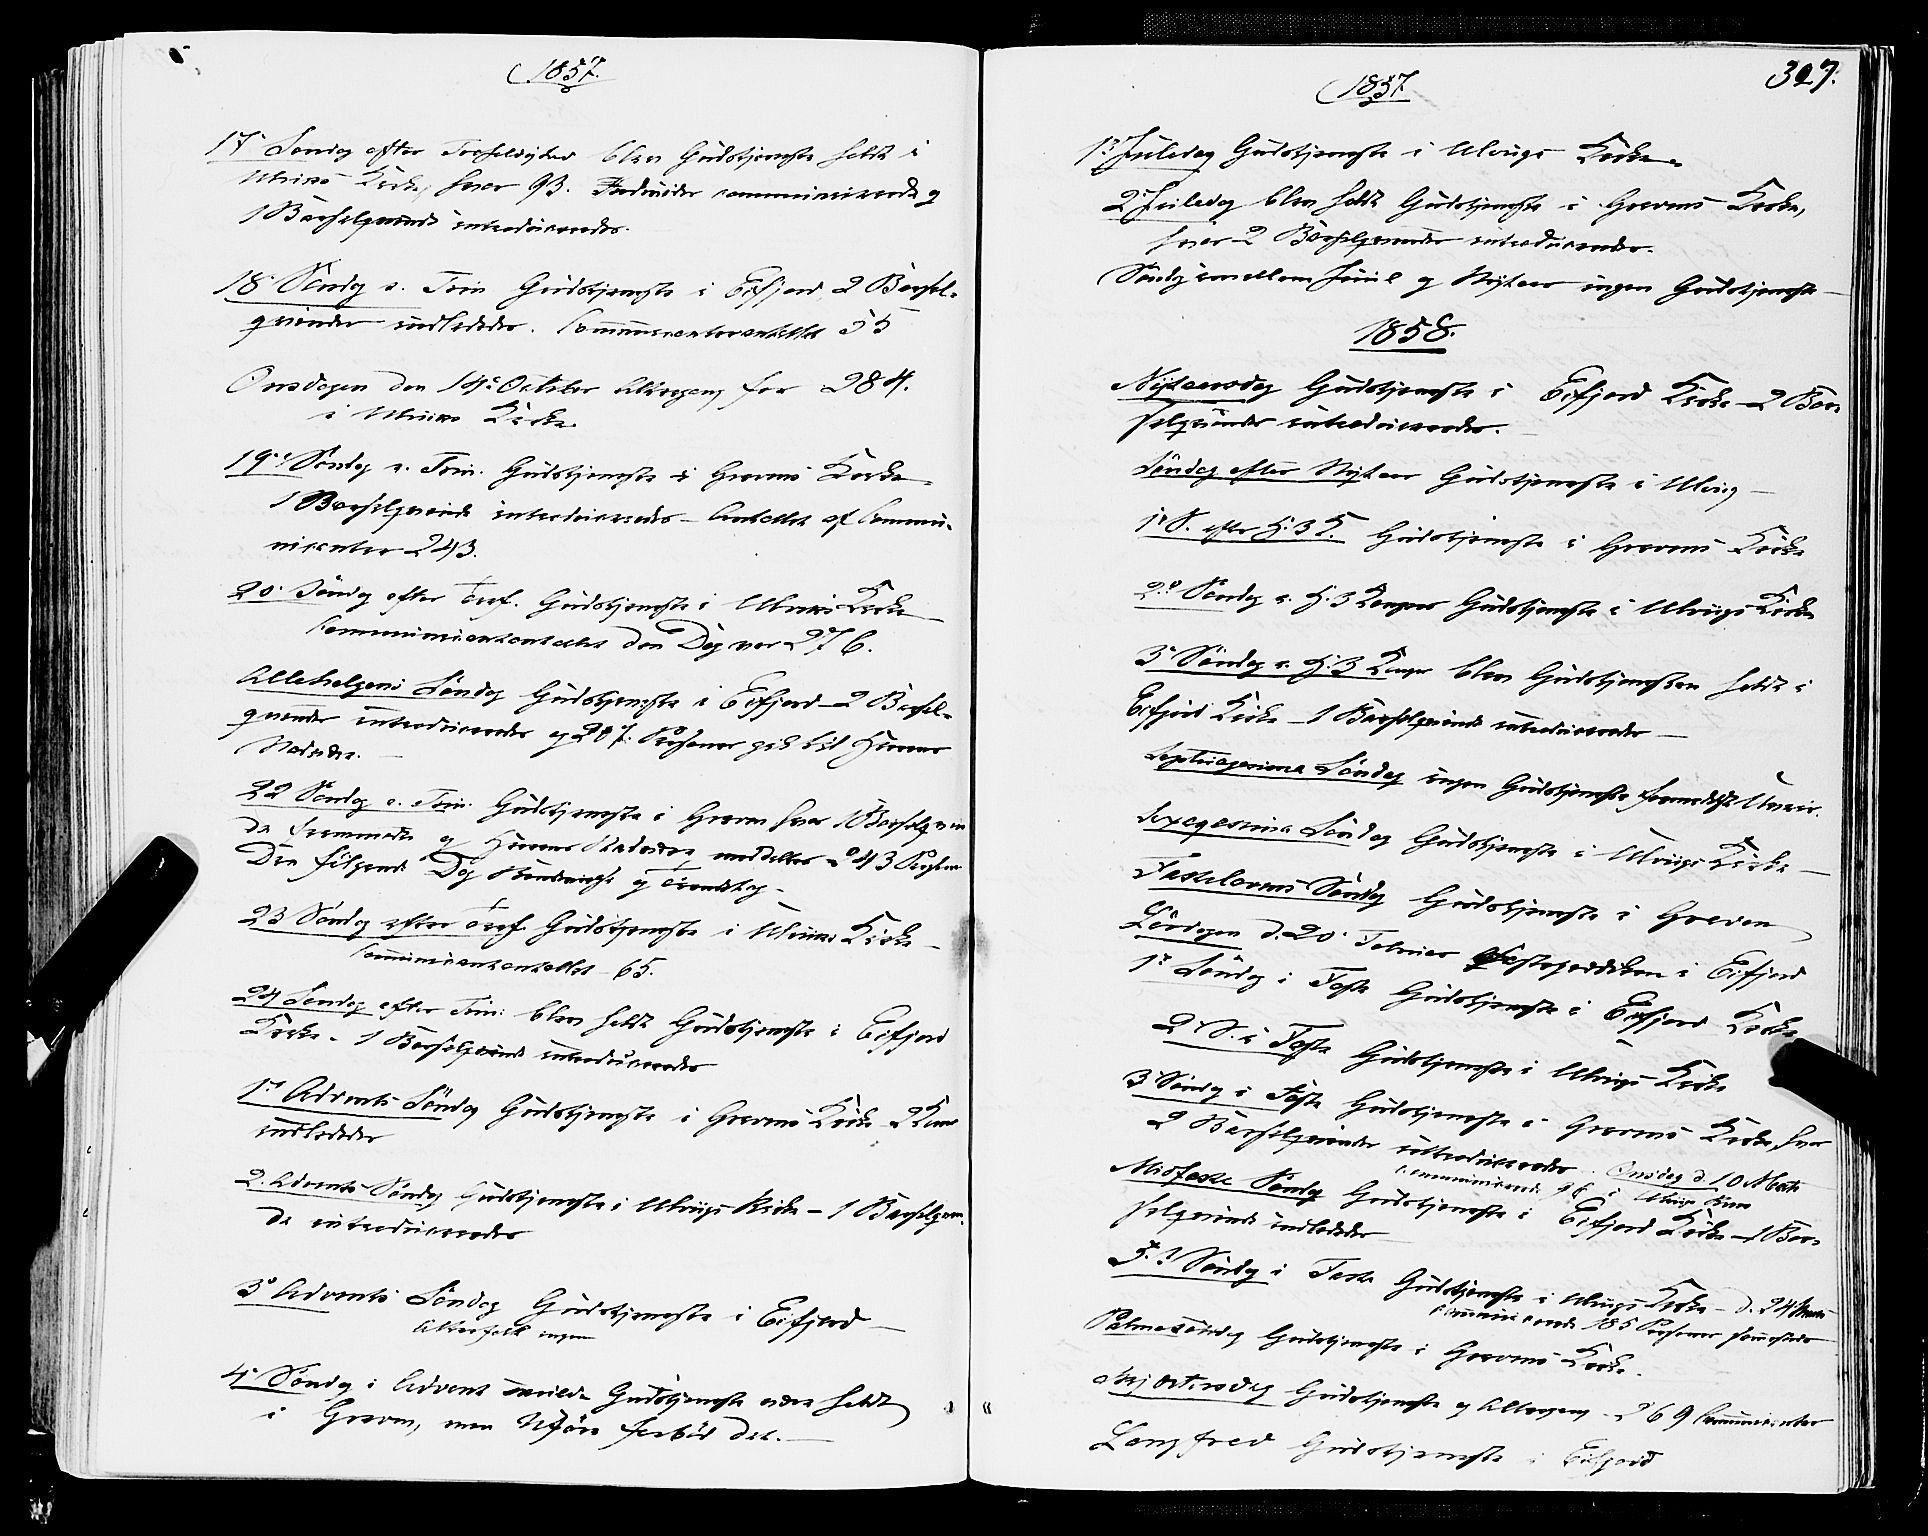 1857.
17. Søndag efter Trefoldighed blev Gudstjeneste holdt i
Ulviks Kirke, hvor 93 Individer communicerede og
1 Barselqvinde introduceredes.
18 Søndag e. Trin Gudstjeneste i Eifjord, 2 Barsel-
qvinder indlededes. Communicantantallet 55
Onsdagen den 14de October Altergang for 284.
i Ulviks Kirke.
19de Søndag e. Trin. Gudstjeneste i Gravens Kirke
1 Barselqvinde introduceredes - Antallet af Commu-
nicanter 243.
20. Søndag efter Tref. Gudstjeneste i Ulviks Kirke
Communicantantallet den Dag var 276.
Allehelgens Søndag Gudstjeneste i Eifjord - 2 Barsel-
qvinder introduceredes og 207 Personer gik til Herrens
Nadvere. -
22 Søndag e. Trin. Gudstjeneste i Graven hvor 1 Barselqvin
de fremmødte og Herrens Nadvere meddeltes 243 Personer
Den følgende Dag
23 Søndag efter Tref. Gudstjeneste i Ulviks Kirke -
Communicantantallet - 65.
24 Søndag efter Trin: blev holdt Gudstjeneste i Eifjord
Kirke - 1 Barselqvinde introduceredes
1ste Advents Søndag Gudstjeneste i Gravens Kirke 2 Koner
indlededes
2. Advents Søndag Gudstjeneste i Ulvigs Kirke - 1 Barselqvin-
de introduceredes
3de Advents Søndag Gudstjeneste i Eifjord -
Alterfolk ingen
4. Søndag i Advent skulde Gudstjeneste være holdt
i Graven, men Uføre forbød det. -
1857
307.
1ste Juledag Gudstjeneste i Ulvigs Kirke.
2. Juledag blev holdt Gudstjeneste i Gravens Kirke,
hvor 2 Barselqvinder introduceredes.
Søndag imellem Juul og Nytaar ingen Gudstjeneste -
1858.
Nytaarsdag Gudstjeneste i Eifjord Kirke - 2 Bar-
selqvinder introduceredes. -
Søndag efter Nytaar Gudstjeneste i Ulvig -
1ste S. efter H. 3 K. Gudstjeneste i Gravens Kirke
2den Søndag e. H. 3 Konger Gudstjeneste i Ulvigs Kirke
3de Søndag e. H. 3 Konger blev Gudstjenesten holdt i
Eifjord Kirke - 1 Barselqvinde introduceredes -
Septuagesima Søndag ingen Gudstjeneste formedelst Uveir.
Sexagesima Søndag Gudstjeneste i Ulvigs Kirke -
Fastelavns Søndag Gudstjeneste i Graven
Løverdagen d. 20. Februar Fasteprædiken i Eifjord
1ste Søndag i Faste Gudstjeneste i Eifjord Kirke
2. S. i Faste Gudstjeneste i Ulvigs Kirke
3 Søndag i Faste Gudstjeneste i Gravens Kirke, hvor
2 Barselqvinder introduceredes. Onsdag d. 10 Marts
communicerede 96 i Ulvigs Kirke
Midfaste Søndag Gudstjeneste i Eifjord Kirke - 1 Bar-
selqvinde indlededes -
5te Søndag i Faste Gudstjeneste i Ulvigs Kirke - d. 24 Marts
communicerede 185 Personer sammesteds
Palmesøndag Gudstjeneste i Gravens Kirke.
Skjærtorsdag Gudstjeneste og Altergang - 269 Communicanter
Langfred Gudstjeneste i Eifjord